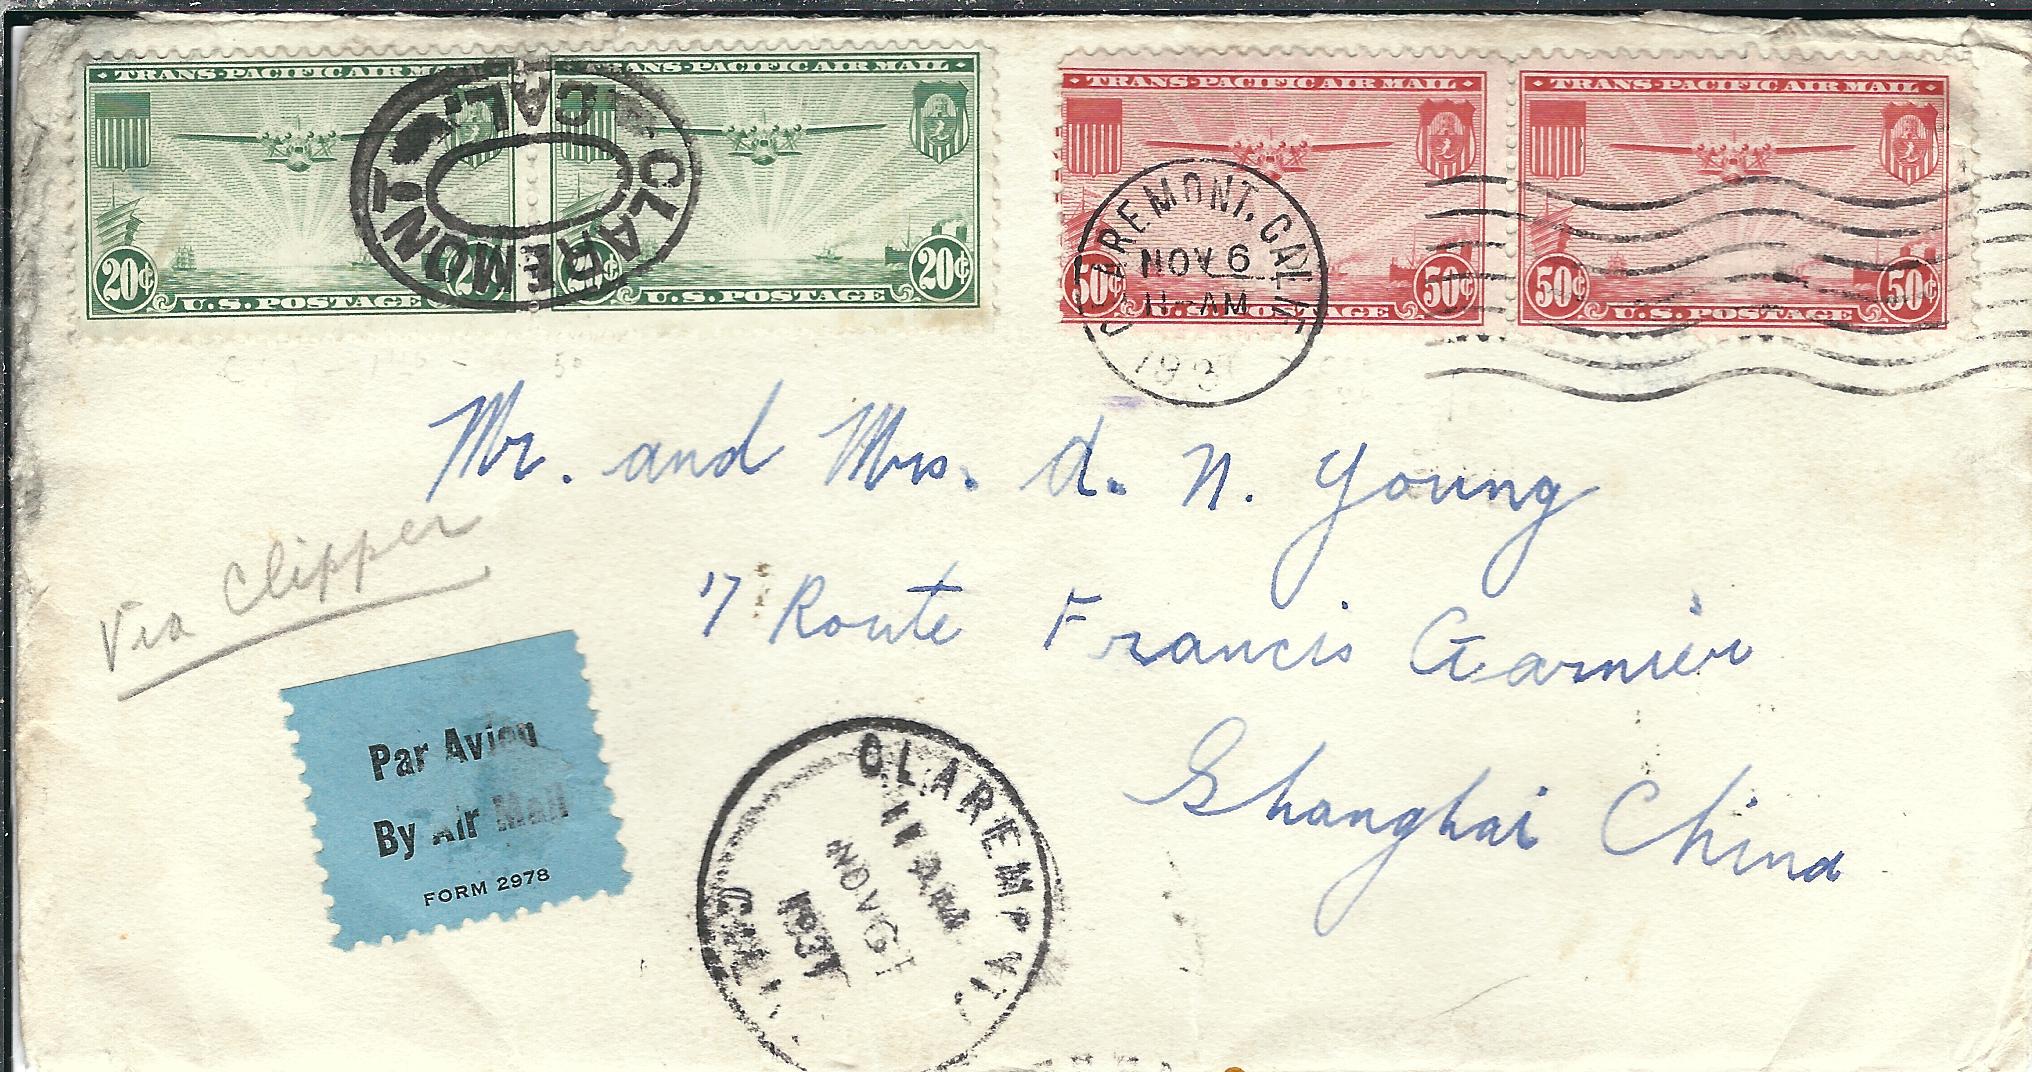 TRANS-PACIFIC AIR MAIL
TRANS-PACIFIC AIR MAIL
TRANS-PACIFIC AIR MAIL
TRANS-PACIFIC AIR MAIL
CLAREMONT CAL.
20¢ U.S. POSTAGE 20¢
U.S. POSTAGE 20¢
50¢ U.S. POSTAGE 50¢
50¢ U.S. POSTAGE 50¢
CLAREMONT, CALIF.
NOV 6
11-AM
Mr. and Mrs. A. N. Young
Via Clipper
17 Route Francis Garnier
Shanghai China
Par Avion
By Air Mail
FORM 2978
CLAREMONT,
11 AM
NOV 6
1937